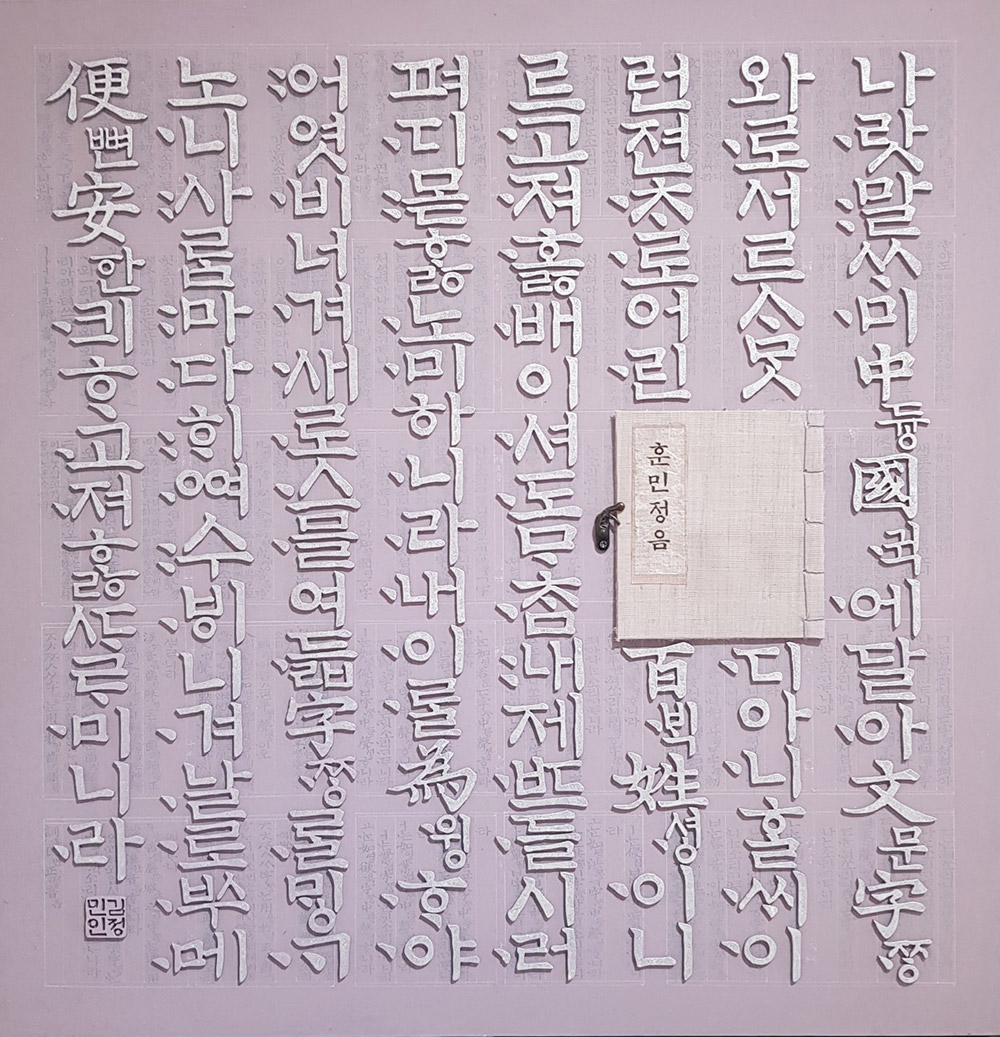 나랏말ᄊᆞ미中듕國귁에달아文문字ᄍᆞᆼ
와로서르ᄉᆞᄆᆞᆺ
디아니ᄒᆞᆯᄊᆡ이
런젼ᄎᆞ로어린
百ᄇᆡᆨ姓셩이니
르고져호ᇙ배이셔도ᄆᆞᄎᆞᆷ내제ᄠᅳ들시러
펴디몯ᄒᆞᇙ노미하니라내이ᄅᆞᆯ為윙ᄒᆞ야
어엿비너겨새로스믈여듧字ᄍᆞᆼᄅᆞᆯᄆᆡᇰᄀᆞ
노니사ᄅᆞᆷ마다ᄒᆡᅇᅧ수ᄫᅵ니겨날로ᄡᅮ메
便뼌安한킈ᄒᆞ고져ᄒᆞᇙᄯᆞᄅᆞ미니라
훈민정음
김정
민인